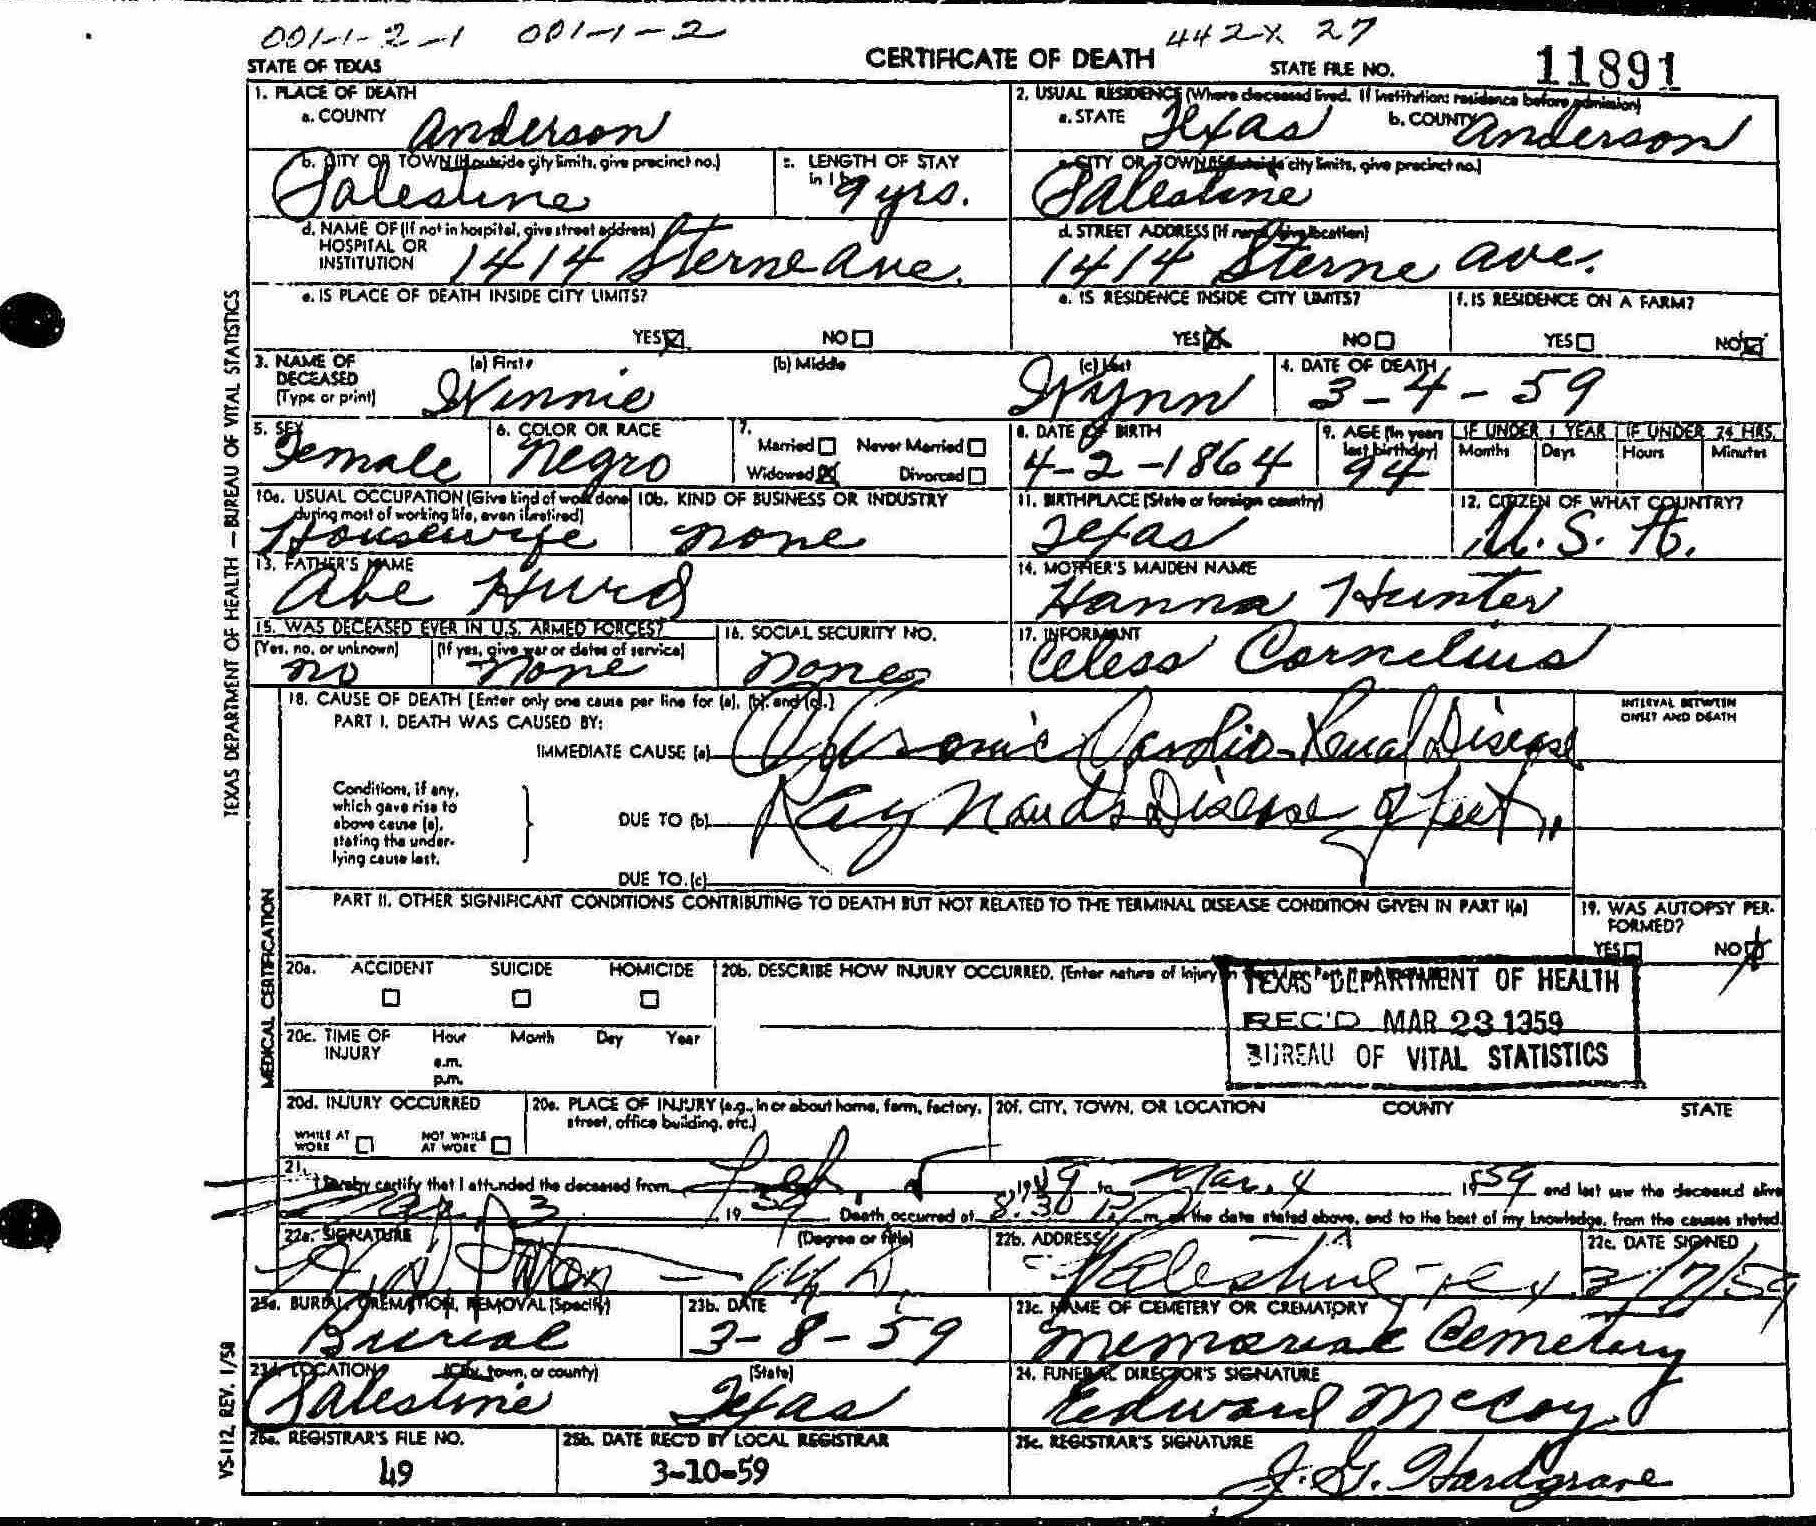 001-1-2-1 001-1-2 442X 27
STATE OF TEXAS CERTIFICATE OF DEATH STATE FILE NO. 11891
1. PLACE OF DEATH
a. COUNTY Anderson
2. USUAL RESIDENCE (Where deceased lived. If institution: residence before admission)
a. STATE Texas b. COUNTY Anderson
b. CITY OR TOWN (If outside city limits, give precinct no.) Palestine
c. LENGTH OF STAY in 1 b. 9 yrs.
c. CITY OR TOWN (If outside city limits, give precinct no.) Palestine
d. NAME OF (If not in hospital, give street address) HOSPITAL OR INSTITUTION 1414 Sterne Ave.
d. STREET ADDRESS (If rural, give location) 1414 Sterne Ave.
e. IS PLACE OF DEATH INSIDE CITY LIMITS? YES NO
e. IS RESIDENCE INSIDE CITY LIMITS? YES NO
f. IS RESIDENCE ON A FARM? YES NO
3. NAME OF DECEASED (Type or print) (a) First Winnie (b) Middle (c) Last Wynn
4. DATE OF DEATH 3-4-59
5. SEX Female
6. COLOR OR RACE Negro
7. Married Never Married Widowed Divorced
8. DATE OF BIRTH 4-2-1864
9. AGE (In years last birthday) 94
IF UNDER 1 YEAR Months Days
IF UNDER 24 HRS. Hours Minutes
10a. USUAL OCCUPATION (Give kind of work done during most of working life, even if retired) Housewife
10b. KIND OF BUSINESS OR INDUSTRY none
11. BIRTHPLACE (State or foreign country) Texas
12. CITIZEN OF WHAT COUNTRY? U.S.A.
13. FATHER'S NAME Abe Hurd
14. MOTHER'S MAIDEN NAME Hanna Hunter
15. WAS DECEASED EVER IN U.S. ARMED FORCES?
(Yes, no, or unknown) no (If yes, give war or dates of service) none
16. SOCIAL SECURITY NO. none
17. INFORMANT Celess Cornelius
18. CAUSE OF DEATH [Enter only one cause per line for (a), (b), and (c).]
INTERVAL BETWEEN ONSET AND DEATH
PART I. DEATH WAS CAUSED BY:
IMMEDIATE CAUSE (a) Chronic Cardio-Renal Disease
Conditions, if any, which gave rise to above cause (a), stating the underlying cause last.
DUE TO (b) Raynaud's Disease of Feet
DUE TO (c)
PART II. OTHER SIGNIFICANT CONDITIONS CONTRIBUTING TO DEATH BUT NOT RELATED TO THE TERMINAL DISEASE CONDITION GIVEN IN PART I(a)
19. WAS AUTOPSY PERFORMED? YES NO
20a. ACCIDENT SUICIDE HOMICIDE
20b. DESCRIBE HOW INJURY OCCURRED. (Enter nature of injury in
TEXAS DEPARTMENT OF HEALTH
REC'D MAR 23 1959
BUREAU OF VITAL STATISTICS
20c. TIME OF INJURY Hour a.m. p.m. Month Day Year
20d. INJURY OCCURRED WHILE AT WORK NOT WHILE AT WORK
20e. PLACE OF INJURY (e.g., in or about home, farm, factory, street, office building, etc.)
20f. CITY, TOWN, OR LOCATION COUNTY STATE
21. I hereby certify that I attended the deceased from Feb. 5 19 to Mar. 4 1959 and last saw the deceased alive
Mar. 3 1959. Death occurred at 8:30 P. m. on the date stated above, and to the best of my knowledge, from the causes stated.
22a. SIGNATURE (Degree or title) M.D.
22b. ADDRESS Palestine, Tex
22c. DATE SIGNED 3/7/59
23a. BURIAL, CREMATION, REMOVAL (Specify) Burial
23b. DATE 3-8-59
23c. NAME OF CEMETERY OR CREMATORY Memorial Cemetery
23d. LOCATION (City, town, or county) (State) Palestine Texas
24. FUNERAL DIRECTOR'S SIGNATURE Edward McCoy
25a. REGISTRAR'S FILE NO. 49
25b. DATE REC'D BY LOCAL REGISTRAR 3-10-59
25c. REGISTRAR'S SIGNATURE J. G. Hardgrave
TEXAS DEPARTMENT OF HEALTH — BUREAU OF VITAL STATISTICS
MEDICAL CERTIFICATION
VS-112, REV. 1/58